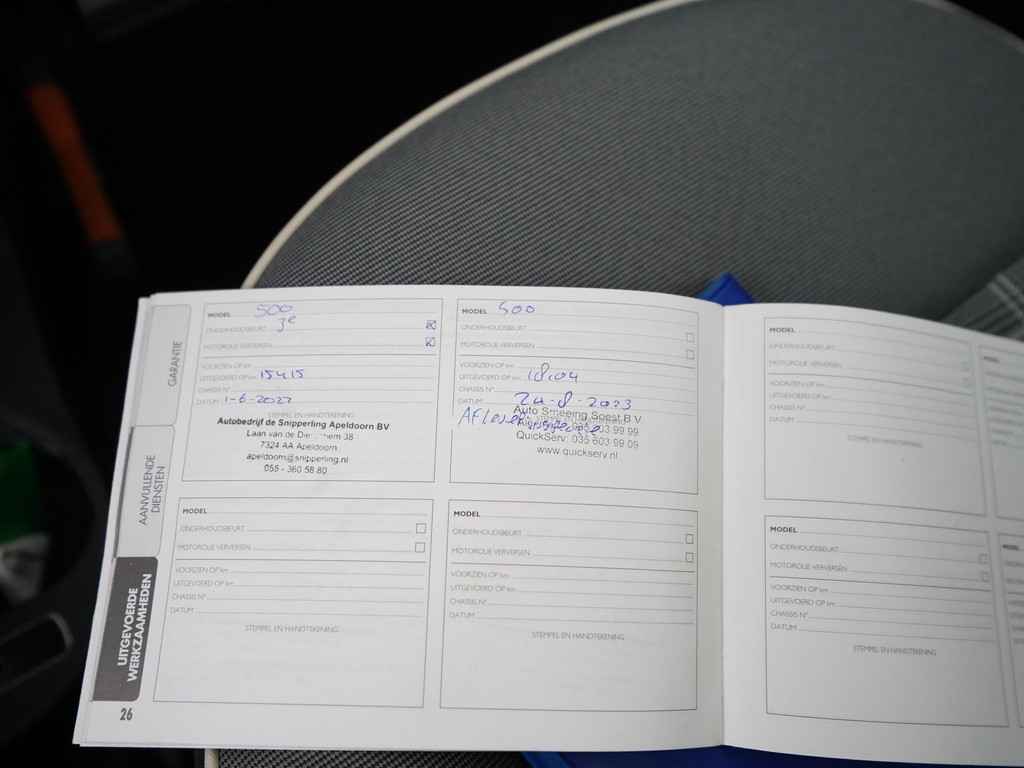 GARANTIE
AANVULLENDE
DIENSTEN
UITGEVOERDE
WERKZAAMHEDEN
26
MODEL 500
ONDERHOUDSBEURT 3e
MOTOROLIE VERVERSEN
VOORZIEN OP km
UITGEVOERD OP km 15415
CHASSIS N°
DATUM 1-6-2022
STEMPEL EN HANDTEKENING
Autobedrijf de Snipperling Apeldoorn BV
Laan van de 38
7324 AA Apeldoorn
apeldoorn@snipperling.nl
055 - 360 58 80
MODEL 500
ONDERHOUDSBEURT
MOTOROLIE VERVERSEN
VOORZIEN OP km
UITGEVOERD OP km 18.04
CHASSIS N°
DATUM 24-8-2023
Auto Smeeing Soest B.V.
035 603 99 99
QuickServ: 035 603 99 09
www.quickserv.nl
MODEL
ONDERHOUDSBEURT
MOTOROLIE VERVERSEN
VOORZIEN OP km
UITGEVOERD OP km
CHASSIS N°
DATUM
STEMPEL EN HANDTEKENING
MODEL
ONDERHOUDSBEURT
MOTOROLIE VERVERSEN
VOORZIEN OP km
UITGEVOERD OP km
CHASSIS N°
DATUM
STEMPEL EN HANDTEKENING
MODEL
ONDERHOUDSBEURT
MOTOROLIE VERVERSEN
VOORZIEN OP km
UITGEVOERD OP km
CHASSIS N°
DATUM
STEMPEL EN HANDTEKENING
MODEL
ONDERHOUDSBEURT
MOTOROLIE VERVERSEN
VOORZIEN OP km
UITGEVOERD OP km
CHASSIS N°
DATUM
STEMPEL EN HANDTEKENING
MODEL
MODEL